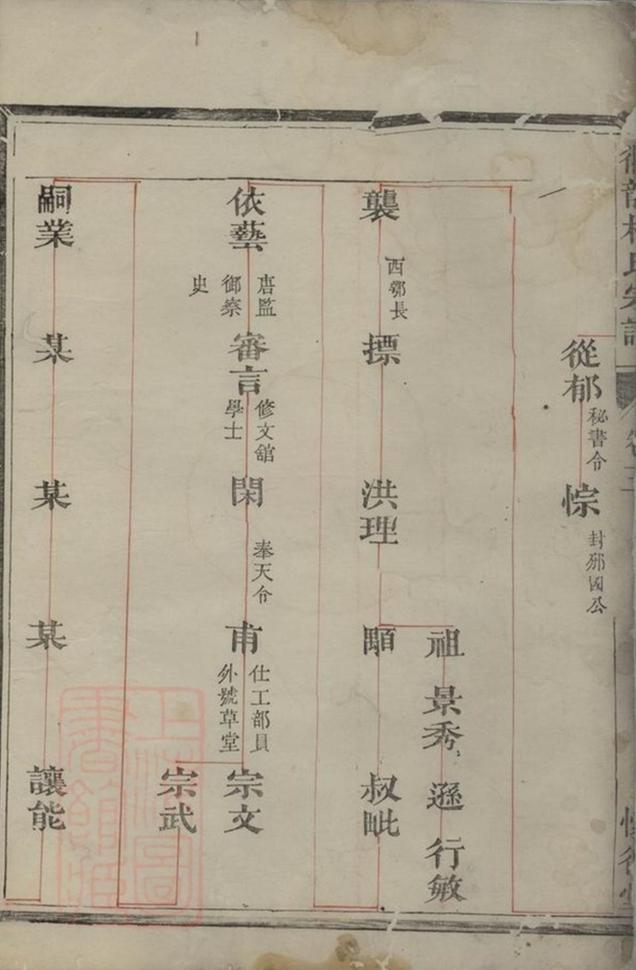 從郁 秘書令
悰 封邠國公
祖 景秀 遜 行敏
襲 西鄂長
摽
洪理
顒
叔毗
依藝 唐監察御史
審言 修文舘學士
閑 奉天令
甫 仕工部員外號草堂
宗文
宗武
嗣業
某
某
某
讓能